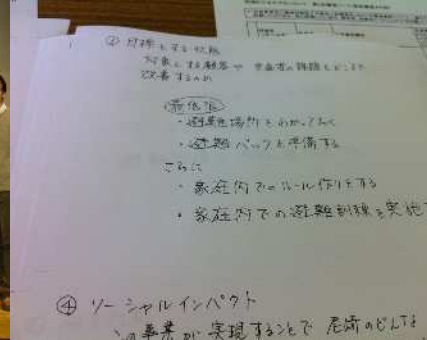 ② 目標とする状態
対象とする顧客や 受益者の課題をどこまで
改善するのか
最低限
・避難場所をわかっておく
・避難パックを準備する
さらに
・家庭内でのルール作りをする
・家庭内での避難訓練を実施
④ ソーシャルインパクト
この事業が実現することで 尼崎のどんな